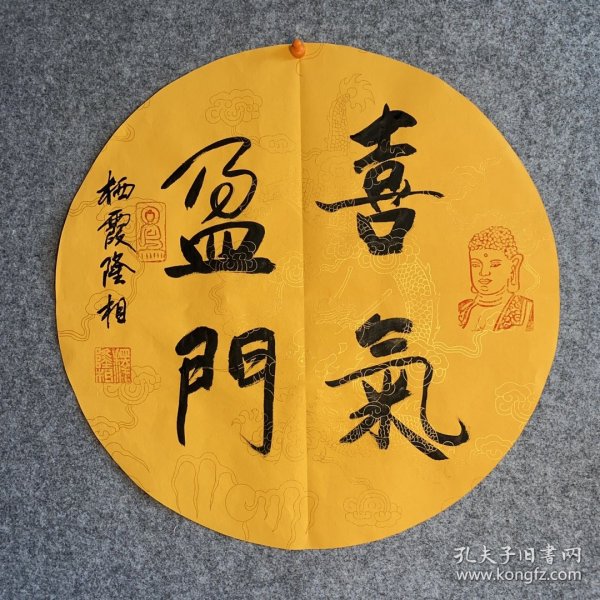 喜氣
盈門
栖霞隆相
釋隆相
孔夫子旧書网
www.kongfz.com